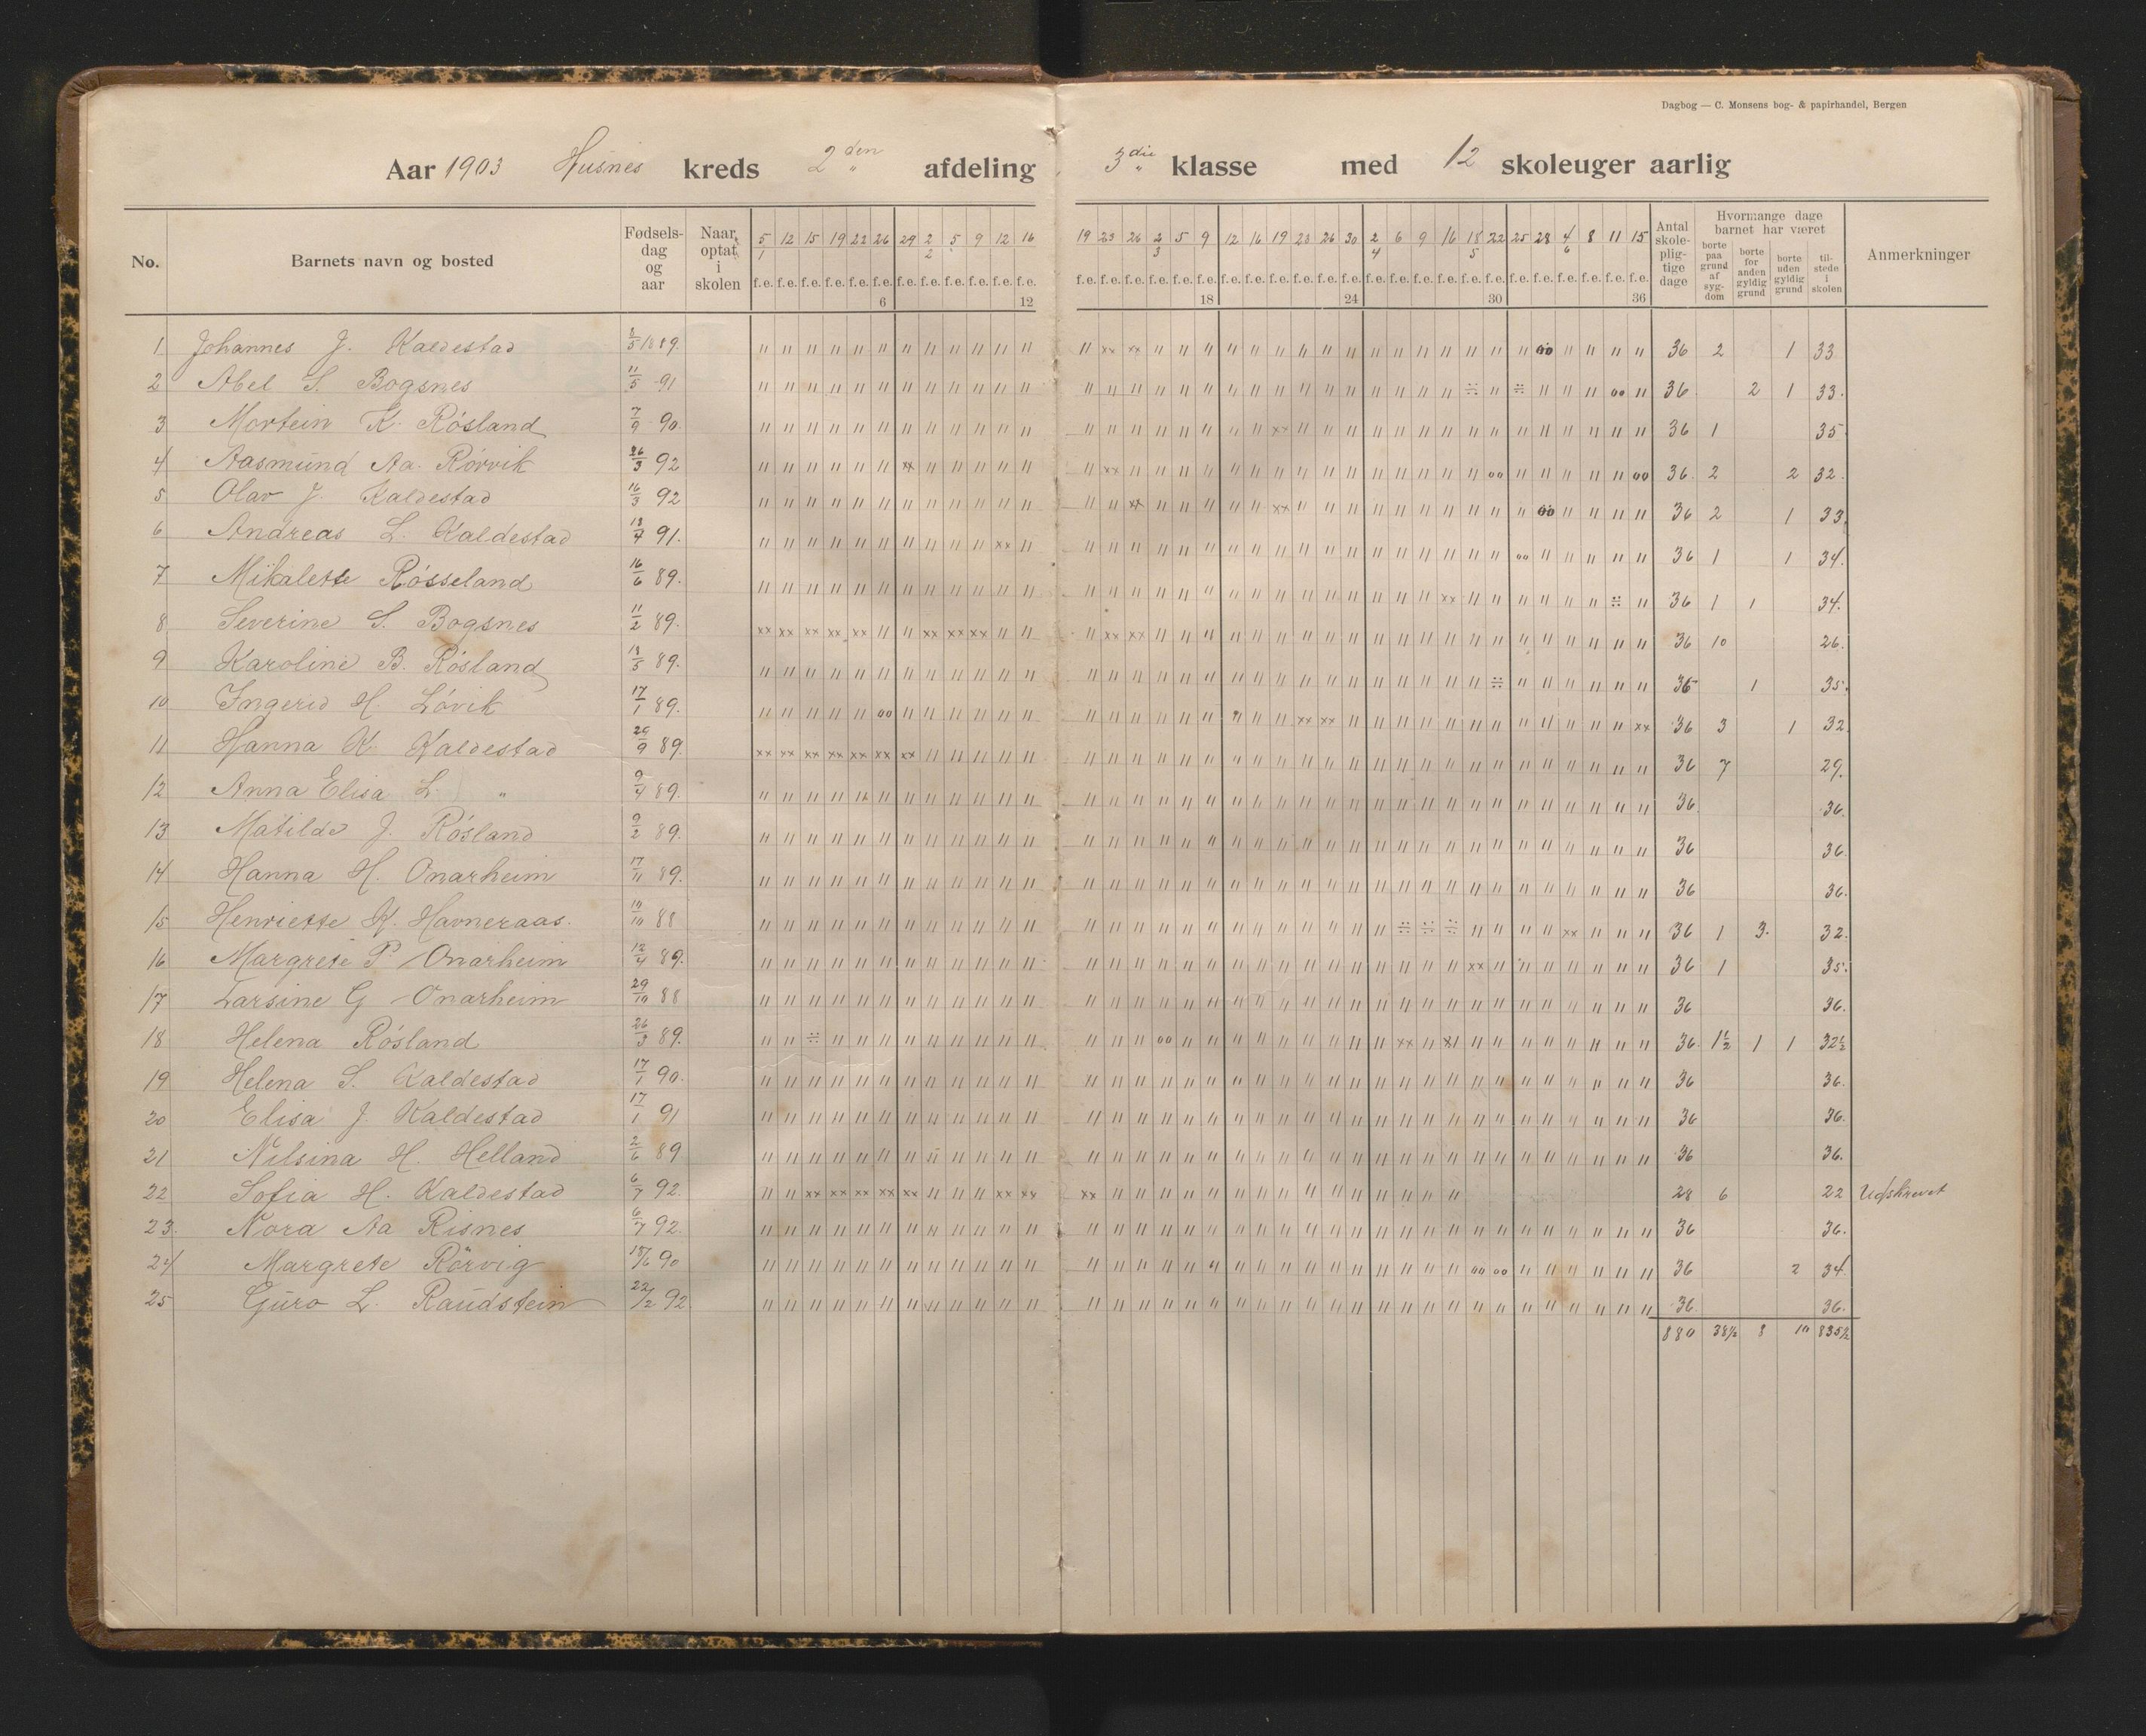 Dagbog — C. Monsens bog- & papirhandel, Bergen
Aar 1903 Husnes kreds 2den afdeling 3die klasse med 12 skoleuger aarlig
No. Barnets navn og bosted Fødsels-dag og aar Naar optat i skolen Antal skole-plig-tige dage Hvormange dage barnet har været Anmerkninger
borte paa grund af syg-dom borte for anden gyldig grund borte uden gyldig grund til-stede i skolen
5/1 12 15 19 22 26 29 2/2 5 9 12 16 19 23 26 2/3 5 9 12 16 19 23 26 30 2/4 6 9 16 18/5 22 25 28 4/6 8 11 15
f.e. f.e. f.e. f.e. f.e. f.e. f.e. f.e. f.e. f.e. f.e. f.e. f.e. f.e. f.e. f.e. f.e. f.e. f.e. f.e. f.e. f.e. f.e. f.e. f.e. f.e. f.e. f.e. f.e. f.e. f.e. f.e. f.e. f.e. f.e. f.e.
6 12 18 24 30 36
1 Johannes J. Kaldestad 89. 36 2 1 33
2 Abel S. Bogsnes 11/5 91 36 2 1 33.
3 Mortein K. Rósland 7/9 90 36 1 35
4 Aasmund Aa. Rórvik 26/3 92 36. 2 2 32.
5 Olav J. Kaldestad 16/3 92 36 2 1 33.
6 Andreas L. Kaldestad 91. 36 1 1 34.
7 Mikalette Rósseland 16/6 89. 36 1 1 34.
8 Severine S. Bogsnes 11/2 89. 36 10 26.
9 Karoline B. Rósland 89. 36 1 35.
10 Ingerid H. Lóvik 17/1 89. 36 3 1 32.
11 Hanna K. Kaldestad 29/9 89. 36 7 29.
12 Anna Elisa L. " 9/4 89. 36. 36.
13 Matilde J. Rósland 9/2 89. 36 36.
14 Hanna H. Onarheim 17/11 89. 36 36.
15 Henriette K. Havneraas. 88 36 1 3. 32.
16 Margrete P. Onarheim 12/4 89. 36 1 35.
17 Larsine G Onarheim 29/10 88 36 36.
18 Helena Rósland 26/3 89. 36. 1½ 1 1 32½
19 Helena S. Kaldestad 17/1 90. 36 36.
20 Elisa J. Kaldestad 17/1 91 36 36.
21 Nilsina H. Helland 2/6 89 36 36.
22 Sofia H. Kaldestad 6/7 92. 28 6 22 Udskrevet
23. Nora Aa Risnes 6/7 92. 36 36.
24 Margrete Rörvig 90 36 2 34.
25 Guro L. Raudstein 22/2 92. 36. 36.
880 38½ 8 10 835½